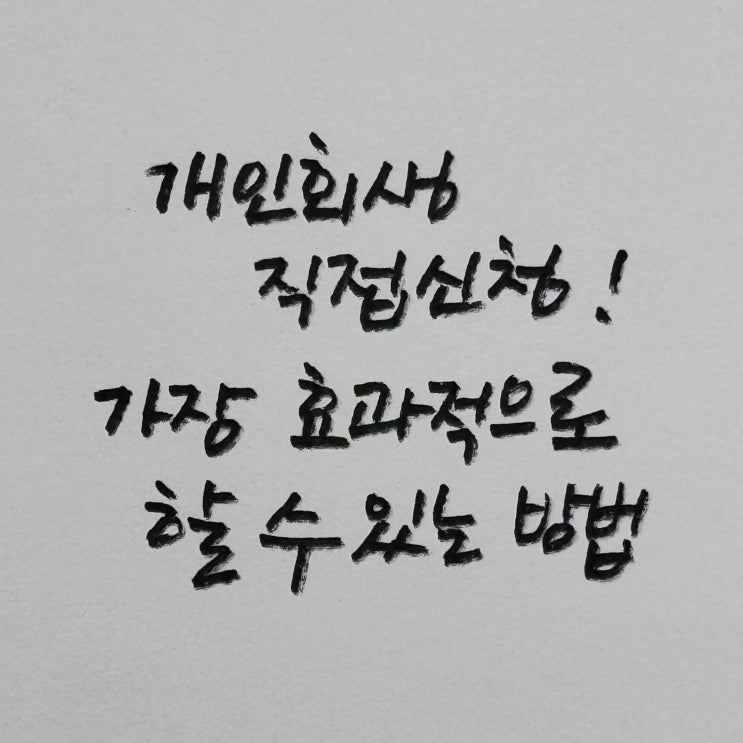 개인회생
직접신청!
가장 효과적으로
할 수 있는 방법